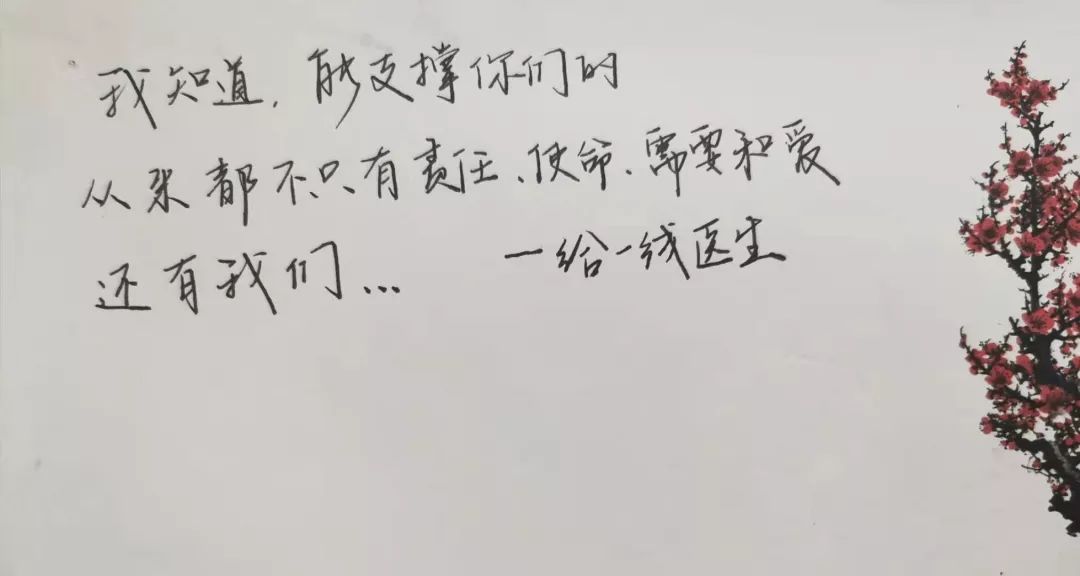 我知道,能支撑你们的
从来都不只有责任、使命、需要和爱
还有我们...
一给一线医生